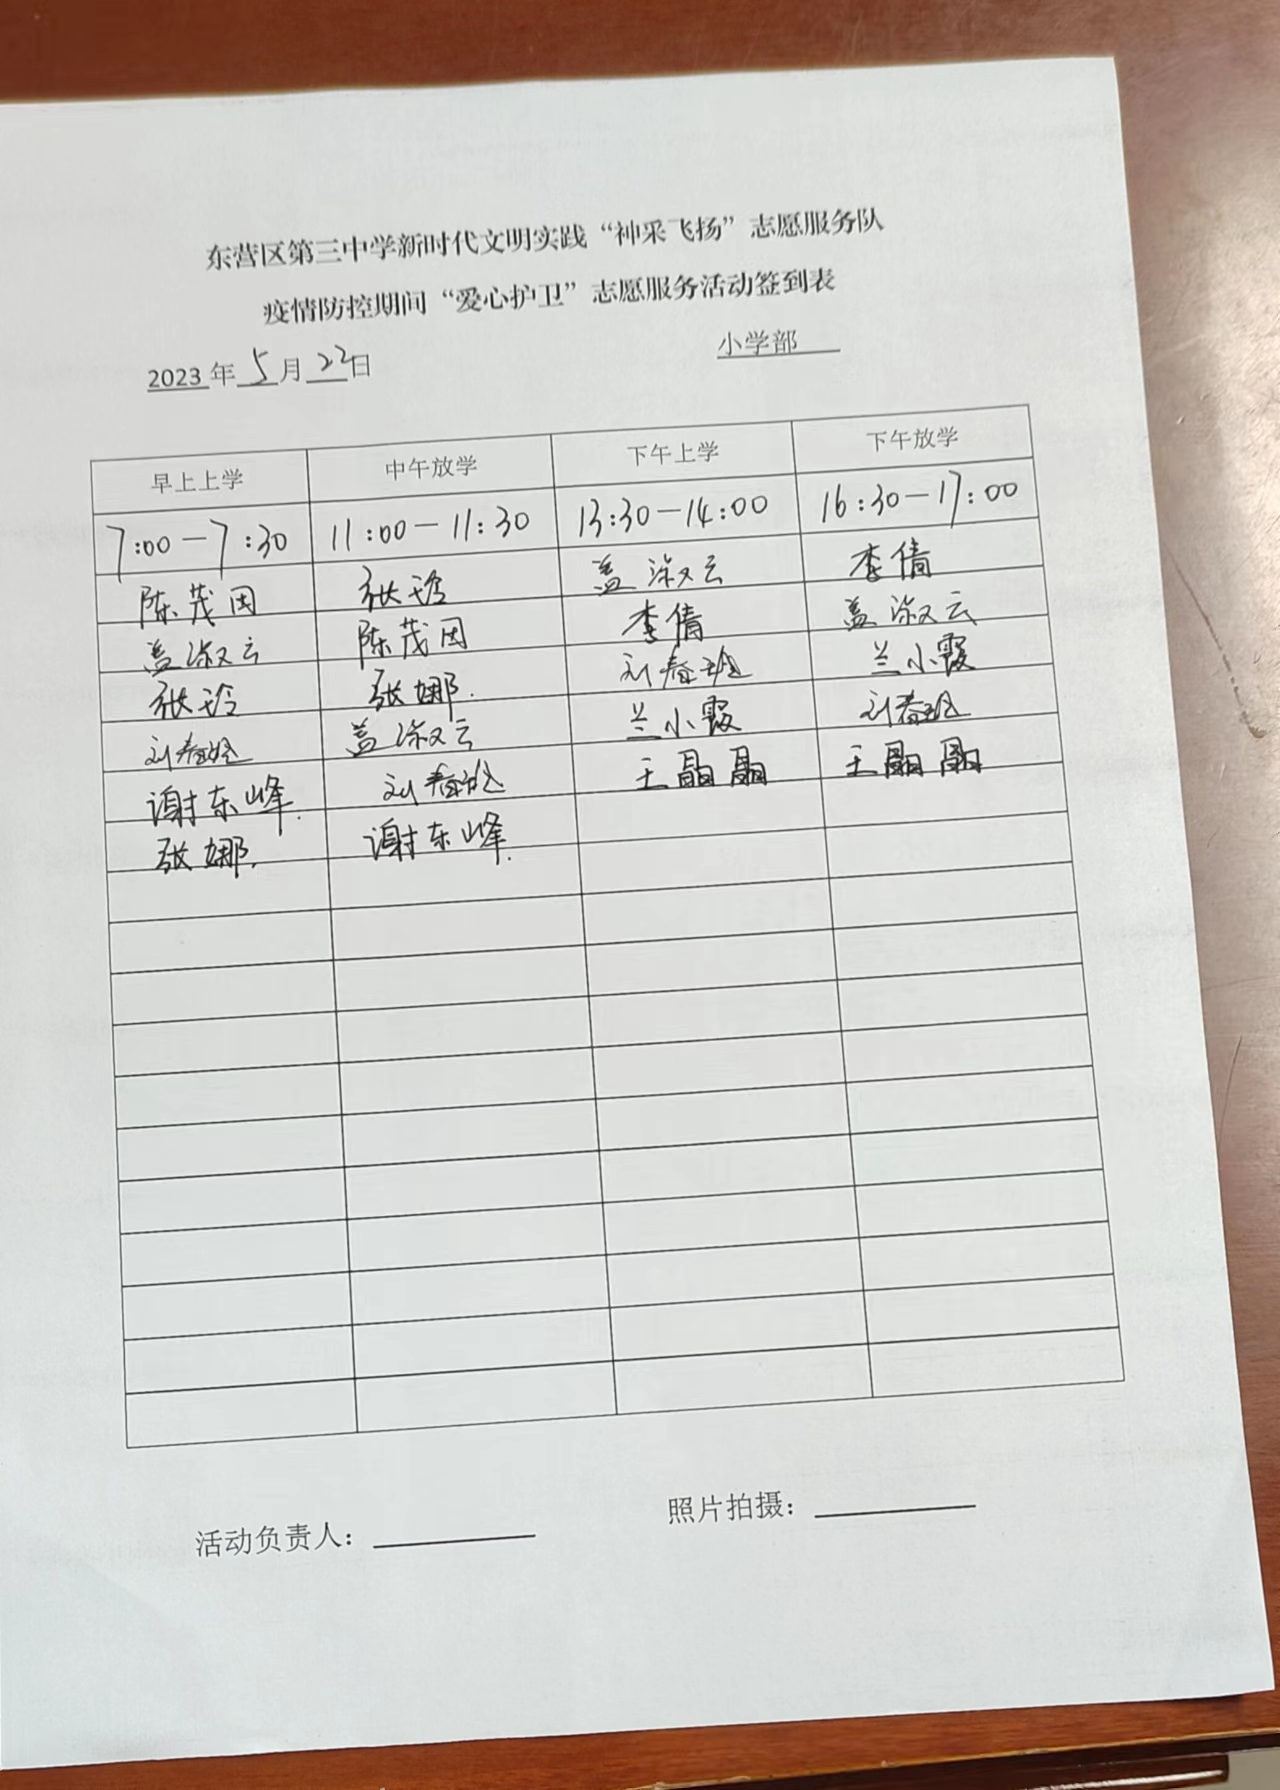 东营区第三中学新时代文明实践“神采飞扬”志愿服务队
疫情防控期间“爱心护卫”志愿服务活动签到表
2023年5月22日 小学部
早上上学 中午放学 下午上学 下午放学
7:00-7:30 11:00-11:30 13:30-14:00 16:30-17:00
陈茂因 张玲 盖淑云 李倩
盖淑云 陈茂因 李倩 盖淑云
张玲 张娜. 刘春 兰小霞
刘春 盖淑云 兰小霞 刘春
谢东峰. 刘春 王晶晶 王晶晶
张娜. 谢东峰.
活动负责人: 照片拍摄: